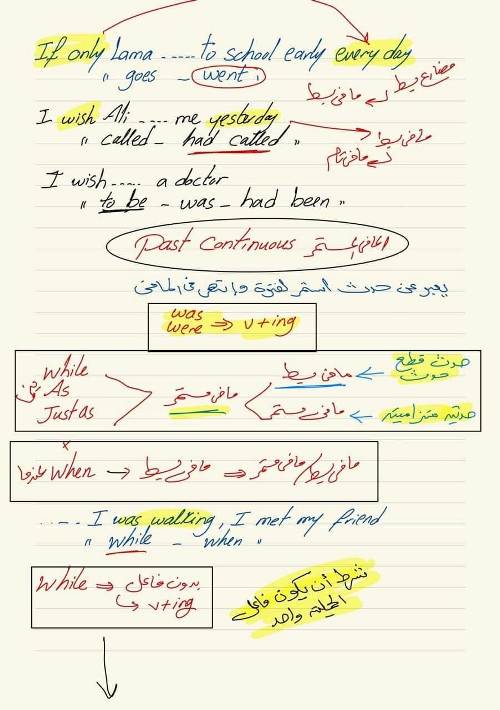 If only Lama ..... to school early every day
" goes - went "
مضارع بسيط
ماضى بسيط
I wish Ali .... me yesterday
" called - had called "
ماضى بسيط
ماضى تام
I wish ..... a doctor
" to be - was - had been "
Past Continuous الماضى المستمر
يعبر عن حدث استمر لفترة وانتهى فى الماضى
was
were ⇒ v+ing
While
As
Just as
ماضى مستمر
ماضى بسيط ← حدث قطع حدث
ماضى مستمر ←
عندما When → ماضى بسيط ⇒ ماضى بسيط/ماضى مستمر
..... I was walking, I met my friend
" while - when "
While ⇒ بدون فاعل
↳ v+ing
شرط أن يكون فاعل
الجملة واحد